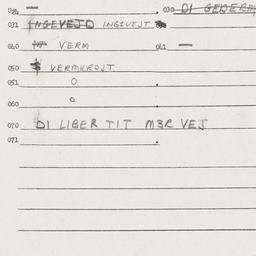 024 — 030 DI GEDERM
031 INGEVEJD INGEVEJT
040 VERM 041 —
050 VERMKROJT
051 O
060 O
070 DI LIBER TIT M3R VEJ
071